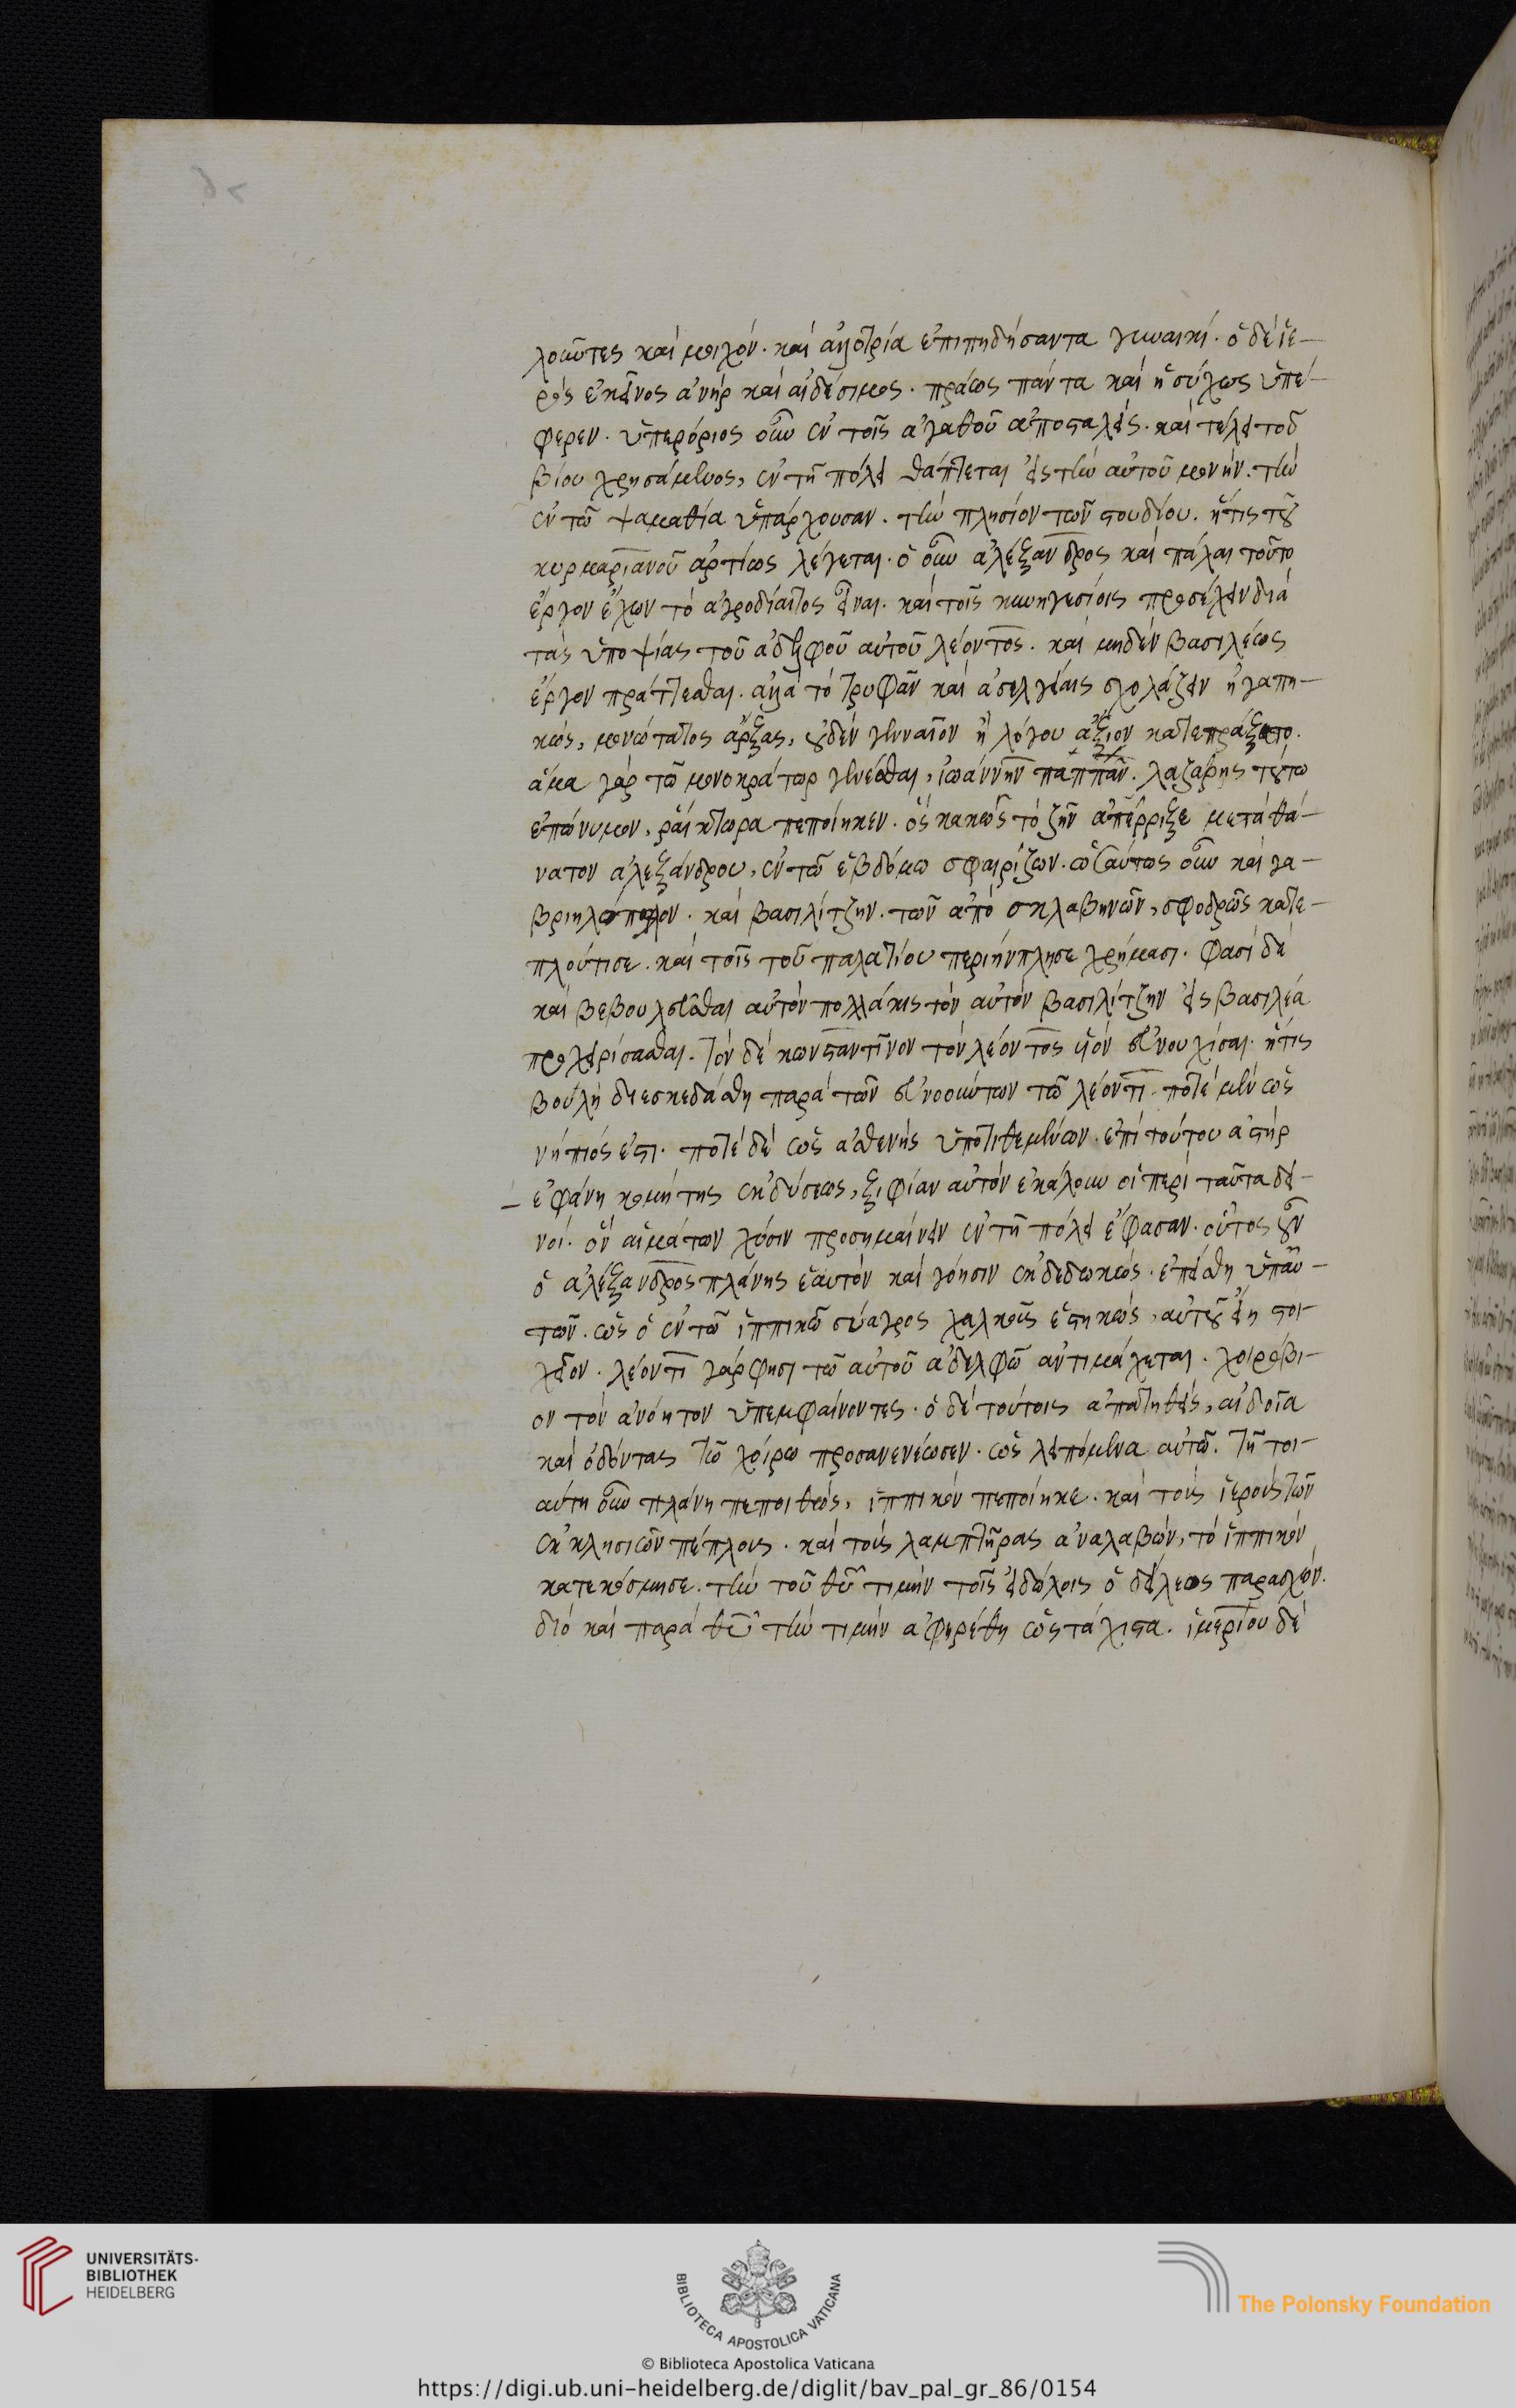 λοῦντες καὶ μοιχόν. καὶ ἀλλοτρία ἐπιπηδήσαντα γυναικί. ὁ δὲ ἱε-
ρὸς ἐκεῖνος ἀνὴρ καὶ αἰδέσιμος. πράως πάντα καὶ ἡσύχως ὑπέ-
φερεν. ὑπερόριος οὖν ἐν τοῖς ἀγαθοῦ ἀποσταλείς. καὶ τέλει τοῦ
βίου χρησάμενος, ἐν τῇ πόλει θάπτεται εἰς τὴν αὐτοῦ μονήν. τὴν
ἐν τῶ ψαμαθία ὑπάρχουσαν. τὴν πλησίον τῶν στουδίου. ἥτις τοῦ
κυρμαριανοῦ ἀρτίως λέγεται. ὁ οὖν ἀλέξανδρος καὶ πάλαι τοῦτο
ἔργον ἔχων τὸ ἁγροδίαιτος εἶναι. καὶ τοῖς κυνηγεσίοις προσέχειν διὰ
τὰς ὑποψίας τοῦ ἀδελφοῦ αὐτοῦ λέοντος. καὶ μηδὲν βασιλέως
ἔργον πράττεσθαι. ἀλλὰ τὸ τρυφᾶν καὶ ἀσελγείαις σχολάζειν ἠγαπη-
κώς, μονώτατος ἄρξας, οὐδὲν γενναῖον ἢ λόγου ἄξιον κατεπράξατο.
ἅμα γὰρ τῶ μονοκράτωρ γενέσθαι, ἰωάννην παππᾶν. λαζάρης τούτω
ἐπώνυμον, ῥαίκτωρα πεποίηκεν. ὃς κακῶς τὸ ζῆν ἀπέρριξε μετὰ θά-
νατον ἀλεξάνδρου, ἐν τῶ ἑβδόμω σφαιρίζων. ὡσαύτως οὖν καὶ γα-
βριηλόπουλον. καὶ βασιλίτζην. τῶν ἀπὸ σκλαβηνῶν, σφοδρῶς κατε-
πλούτισε. καὶ τοῖς τοῦ παλατίου περιήνπλησε χρήμασι. φασὶ δὲ
καὶ βεβουλεῦσθαι αὐτὸν πολλάκις τὸν αὐτὸν βασιλίτζην εἰς βασιλέα
προχειρίσασθαι. τὸν δὲ κωνσταντῖνον τὸν λέοντος υἱὸν εὐνουχίσαι. ἥτις
βουλὴ διεσκεδάσθη παρὰ τῶν εὐνοούντων τῶ λέοντι. ποτὲ μὲν ὡς
νήπιός ἐστι. ποτὲ δὲ ὡς ἀσθενὴς ὑποτιθεμένων. ἐπὶ τούτου ἀστὴρ
ἐφάνη κομήτης ἐκ δύσεως, ξιφίαν αὐτὸν ἐκάλουν οἱ περὶ ταῦτα δει-
νοί. ὃν αἱμάτων χύσιν προσημαίνειν ἐν τῇ πόλει ἔφασαν. οὗτος οὖν
ὁ ἀλέξανδρος πλάνης ἑαυτὸν καὶ γόησιν ἐκδεδωκώς. ἐπείσθη ὑπ' αὐ-
τῶν. ὡς ὁ ἐν τῶ ἱππικῶ σύαγρος χαλκοῦς ἑστηκώς, αὐτοῦ εἴη στοι-
χεῖον. λέοντι γάρ φησι τῶ αὐτοῦ ἀδελφῶ ἀντιμάχεται. χοιρόβι-
ον τὸν ἀνόητον ὑπεμφαίνοντες. ὁ δὲ τούτοις ἀπατηθείς, αἰδοῖα
καὶ ὀδόντας τῶ χοίρω προσανενέωσεν. ὡς λειπόμενα αὐτῶ. τῇ τοι-
αύτη οὖν πλάνη πεποιθώς, ἱππικὸν πεποίηκε. καὶ τοὺς ἱεροὺς τῶν
ἐκκλησιῶν πέπλους. καὶ τοὺς λαμπτῆρας ἀναλαβών, τὸ ἱππικὸν
κατεκόσμησε. τὴν τοῦ θῦ τιμὴν τοῖς εἰδώλοις ὁ δείλεος παρασχών.
διὸ καὶ παρὰ θῦ τὴν τιμὴν ἀφηρέθη ὡς τάχιστα. ἱμερίου δὲ
UNIVERSITÄTS-
BIBLIOTHEK
HEIDELBERG
BIBLIOTECA APOSTOLICA VATICANA
The Polonsky Foundation
© Biblioteca Apostolica Vaticana
https://digi.ub.uni-heidelberg.de/diglit/bav_pal_gr_86/0154